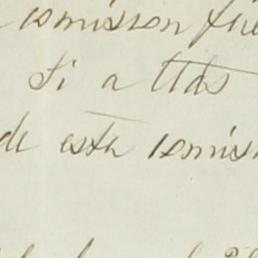 comision fue
Si a Uds
de esta comis